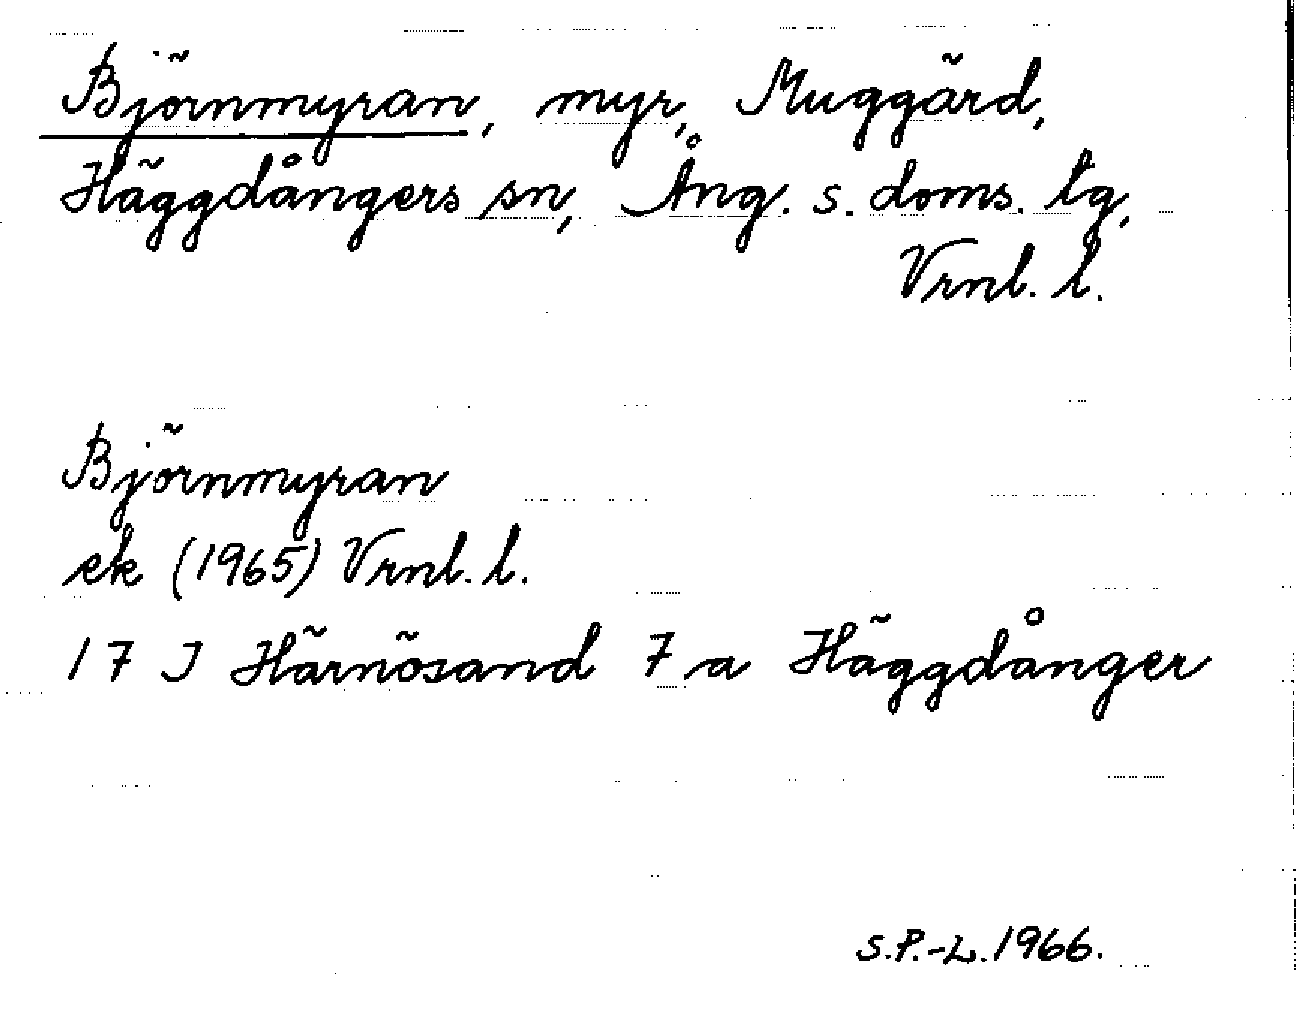 Björnmyran, myr, Muggärd,
Häggdångers sn, Ång. s. doms. tg,
Vrnl. l.
Björnmyran
ek (1965) Vrnl. l.
17 I Härnösand 7 a Häggdånger
S.P.-L. 1966.